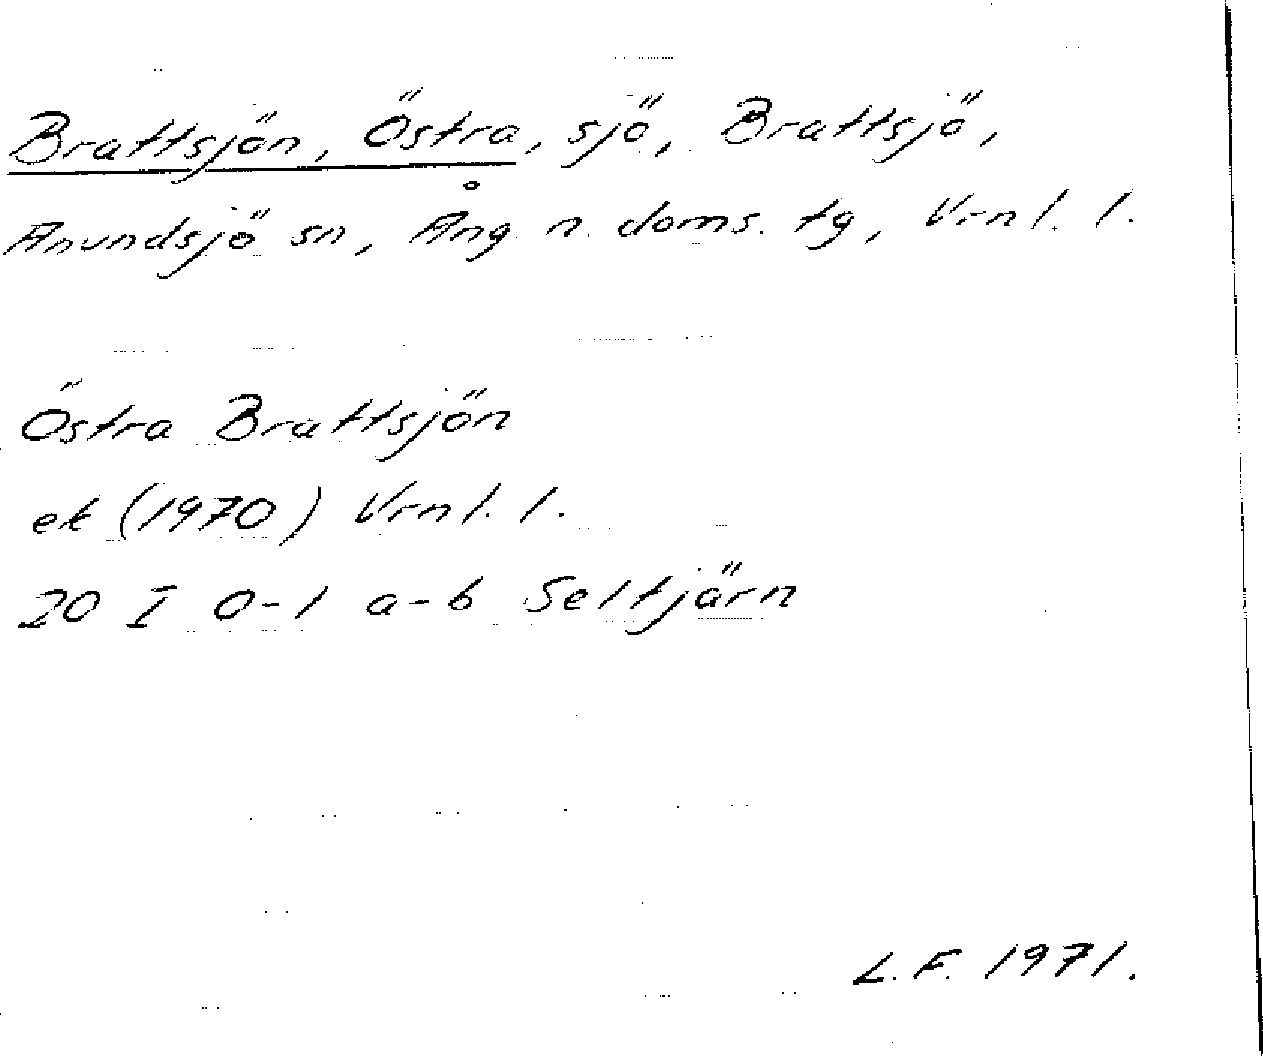 Brattsjön, Östra, sjö, Brattsjö,
Anundsjö sn, Ång n. doms. tg, Vrnl. l.
Östra Brattsjön
ek (1970) Vrnl. l.
20 I 0-1 a-b Seltjärn
L. F. 1971.